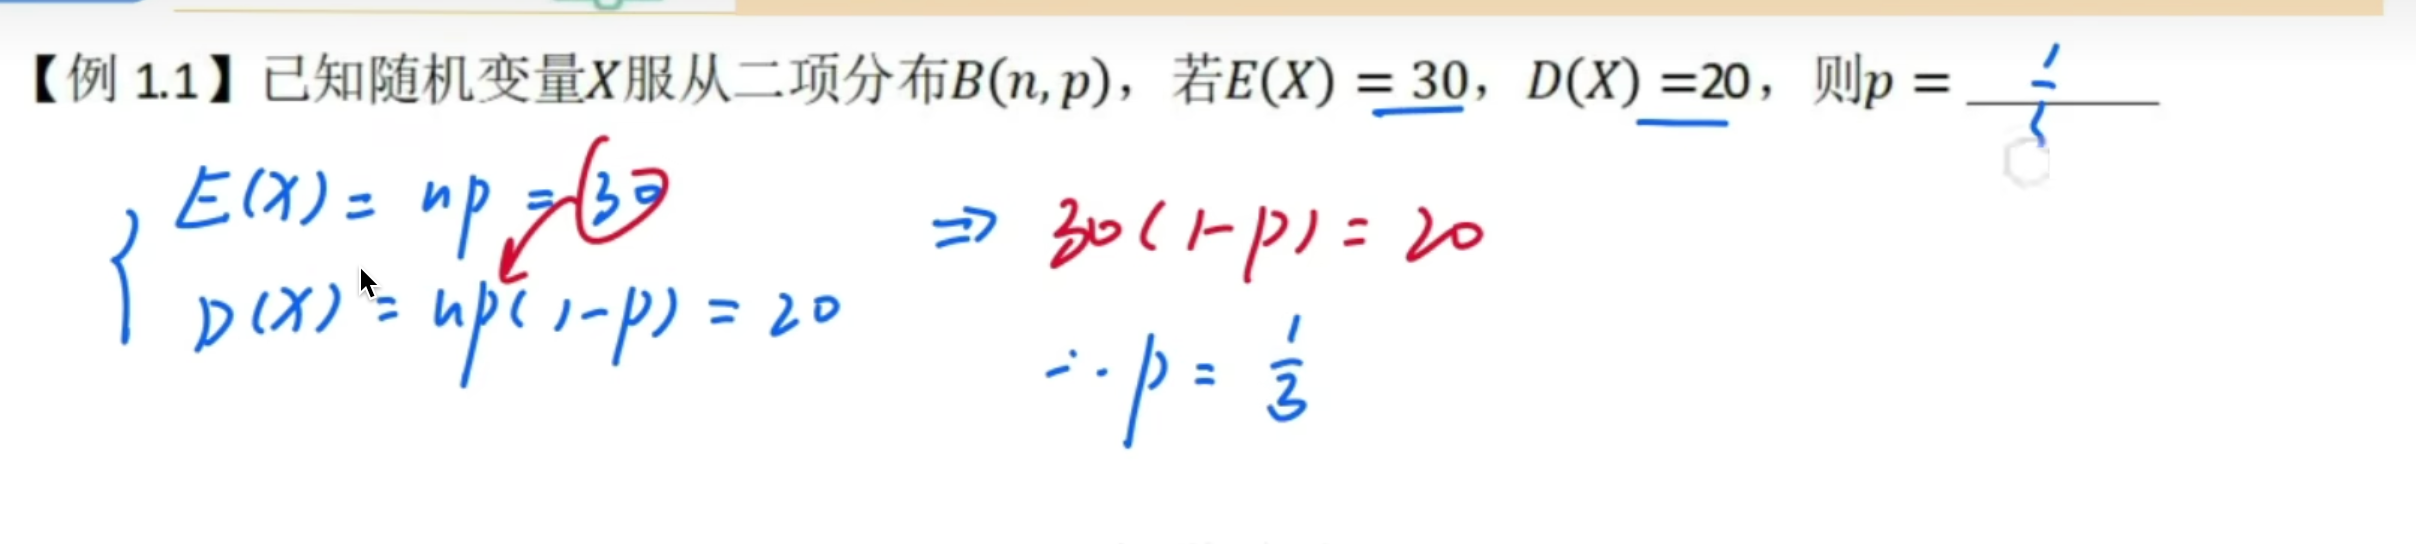 【例 1.1】已知随机变量X服从二项分布B(n,p)，若E(X) = 30，D(X) =20，则p = 1/3
E(X) = np = 30
D(X) = np(1-p) = 20
⇒ 30(1-p) = 20
∴ p = 1/3